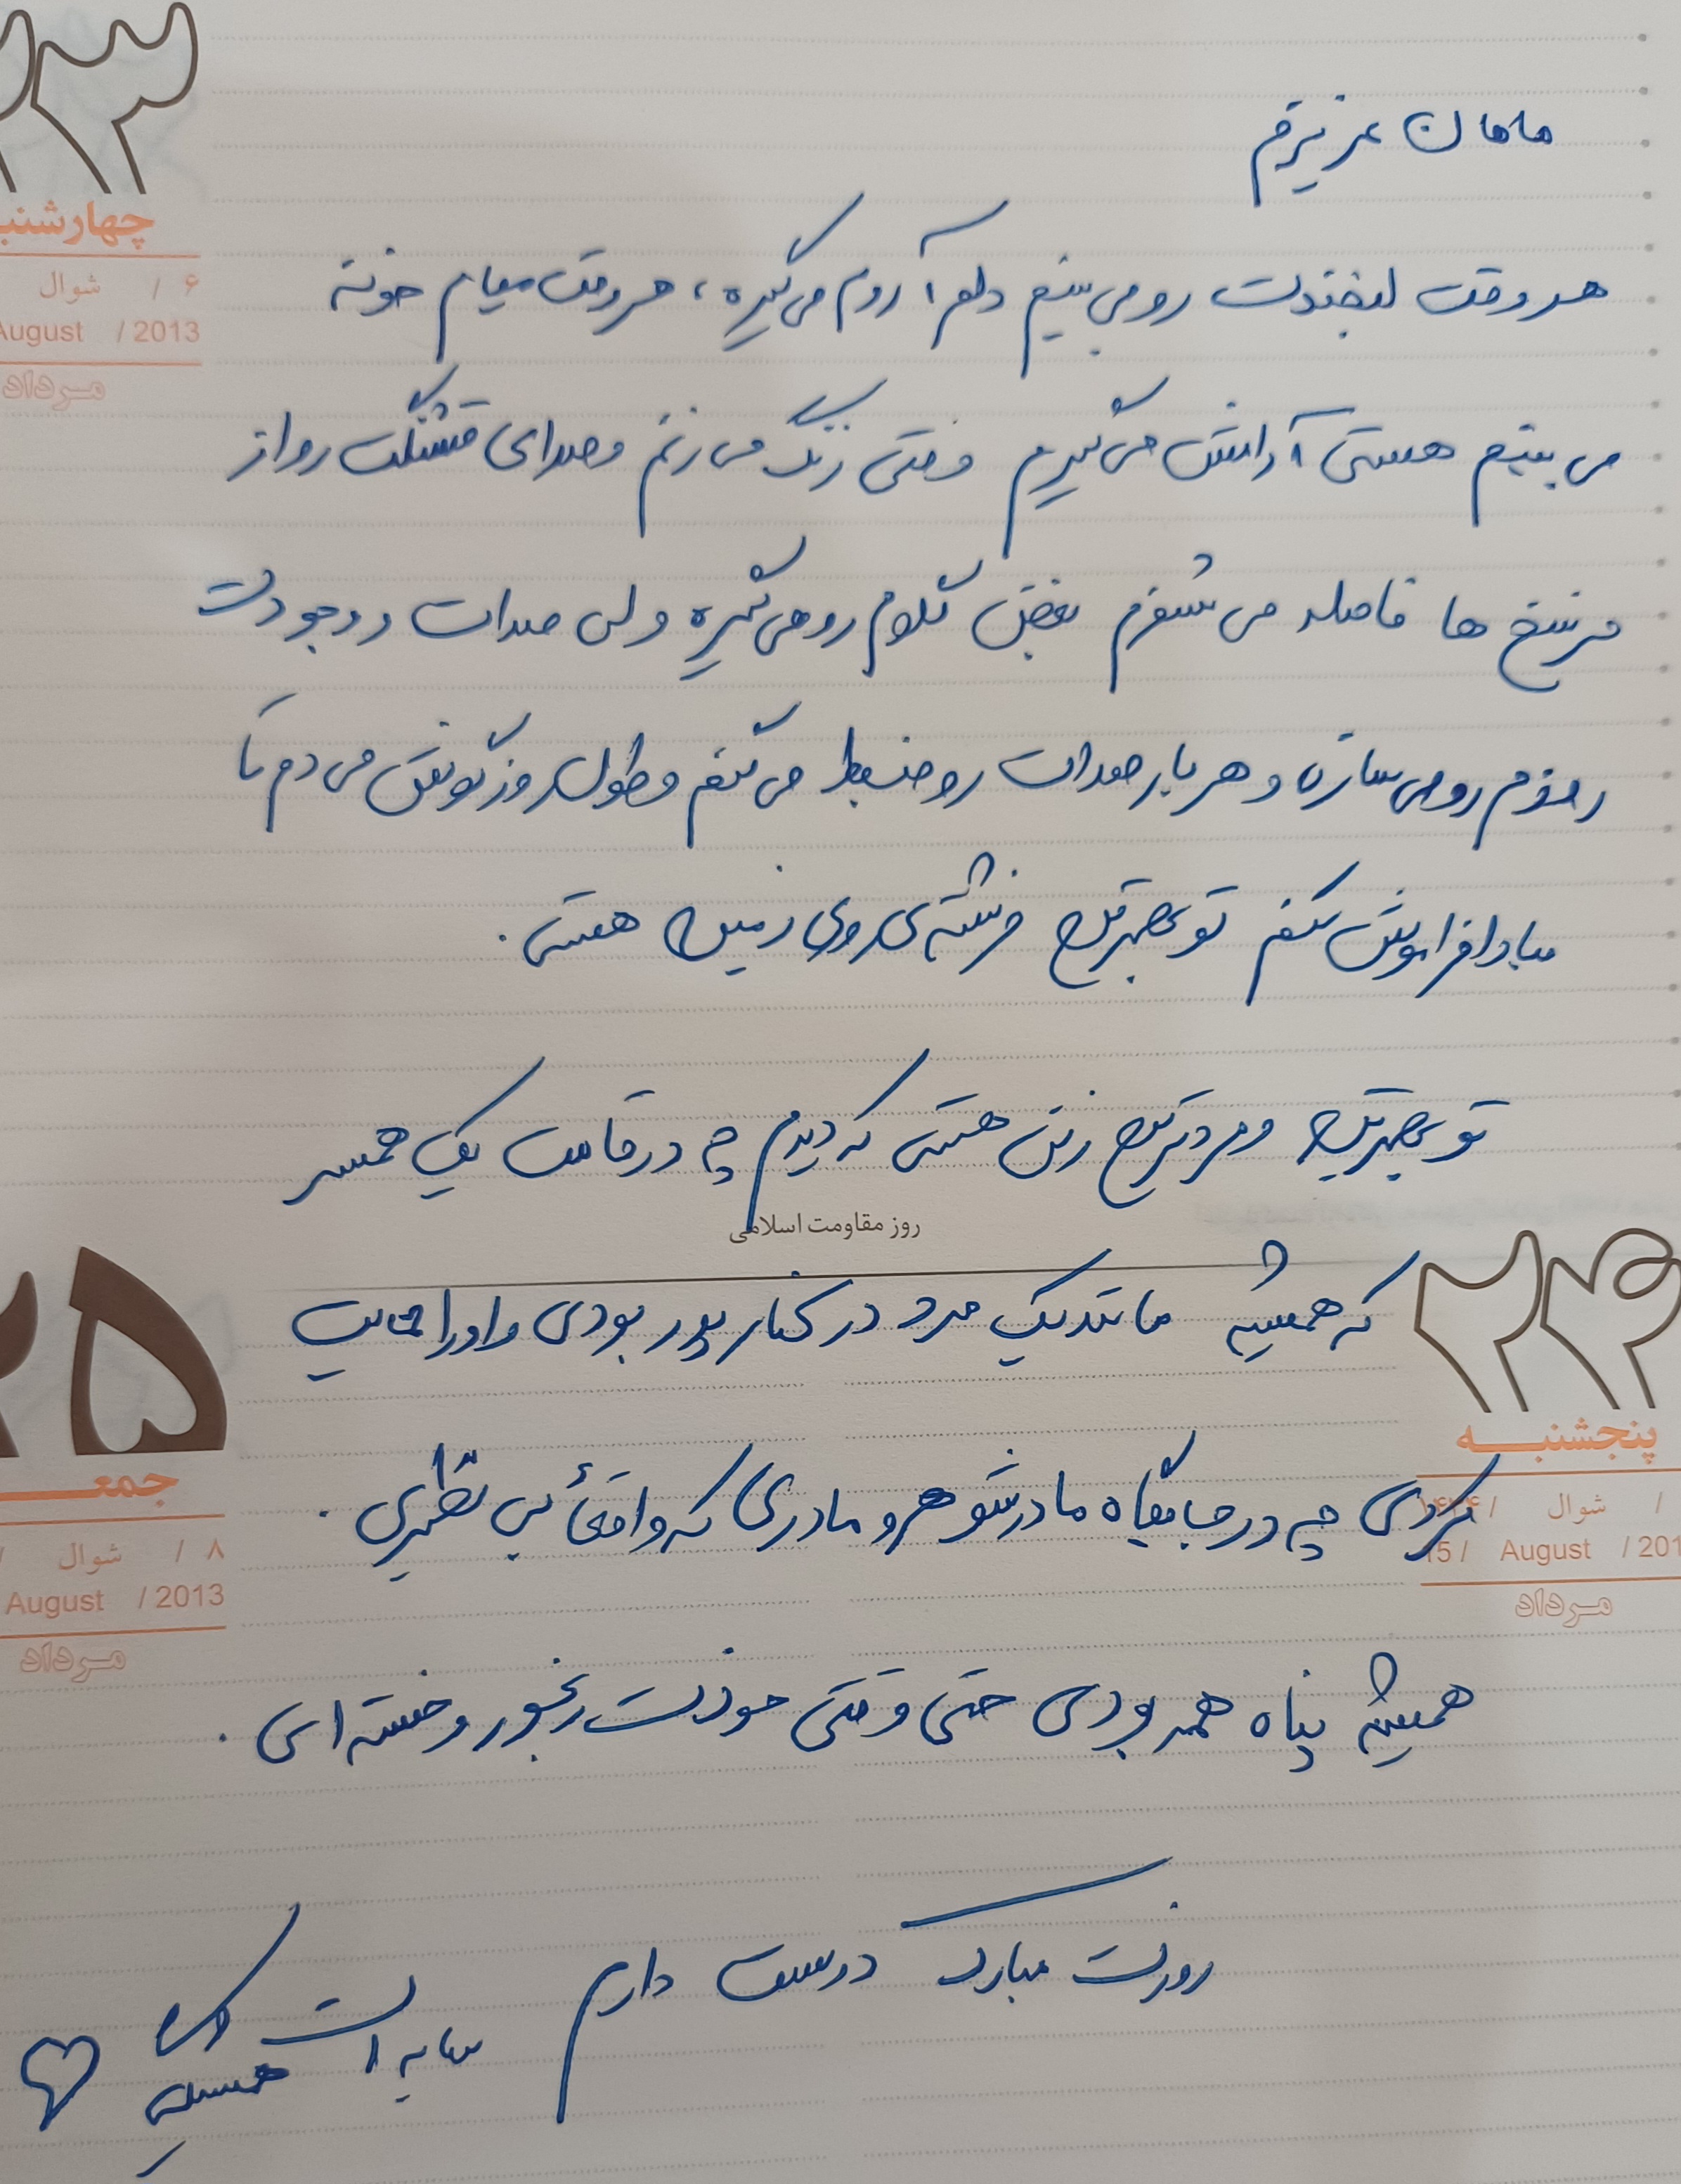 ۲۳
چهارشنبه
۶ / شوال
August / 2013
مرداد
مامان عزیزم
هر وقت لبخندت رو می بینم دلم آروم می گیره، هر وقت میام خونه
می بینم هستی آرامش می گیرم وقتی زنگ می زنم و صدای قشنگت رو از
فرسخ ها فاصله می شنوم بغض گلوم رو می گیره ولی صدات و وجودت
روزم رو می سازه و هر بار صدات رو ضبط می کنم و طول روز گوش می دم تا
مبادا فراموش کنم تو بهترین فرشته ی روی زمین هستی.
تو بهترین و مردترین زنی هستی که دیدم چه در قامت یک همسر
روز مقاومت اسلامی
که همیشه مانند یک مرد در کنار پدر بودی و او را حمایت
کردی چه در جایگاه مادرشوهر و مادری که واقعاً بی نظیری.
همیشه پناه همه بودی حتی وقتی خودت رنجور و خسته ای.
روزت مبارک دوست دارم
سایه ات
همیشگی
۲۴
پنجشنبه
/ شوال / ۱۴۳۴
15 / August / 201
مرداد
۲۵
جمعه
۸ / شوال /
August / 2013
مرداد